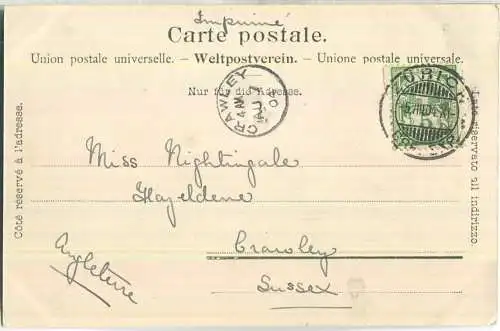 Imprimé
Carte postale.
Union postale universelle. – Weltpostverein. – Unione postale universale.
Nur für die Adresse.
CRAWLEY
AU
ZÜRICH
Côté réservé à l'adresse.
Lato riservato all indirizzo
Miss Nightingale
Hazeldene
Crawley
Sussex
Angleterre